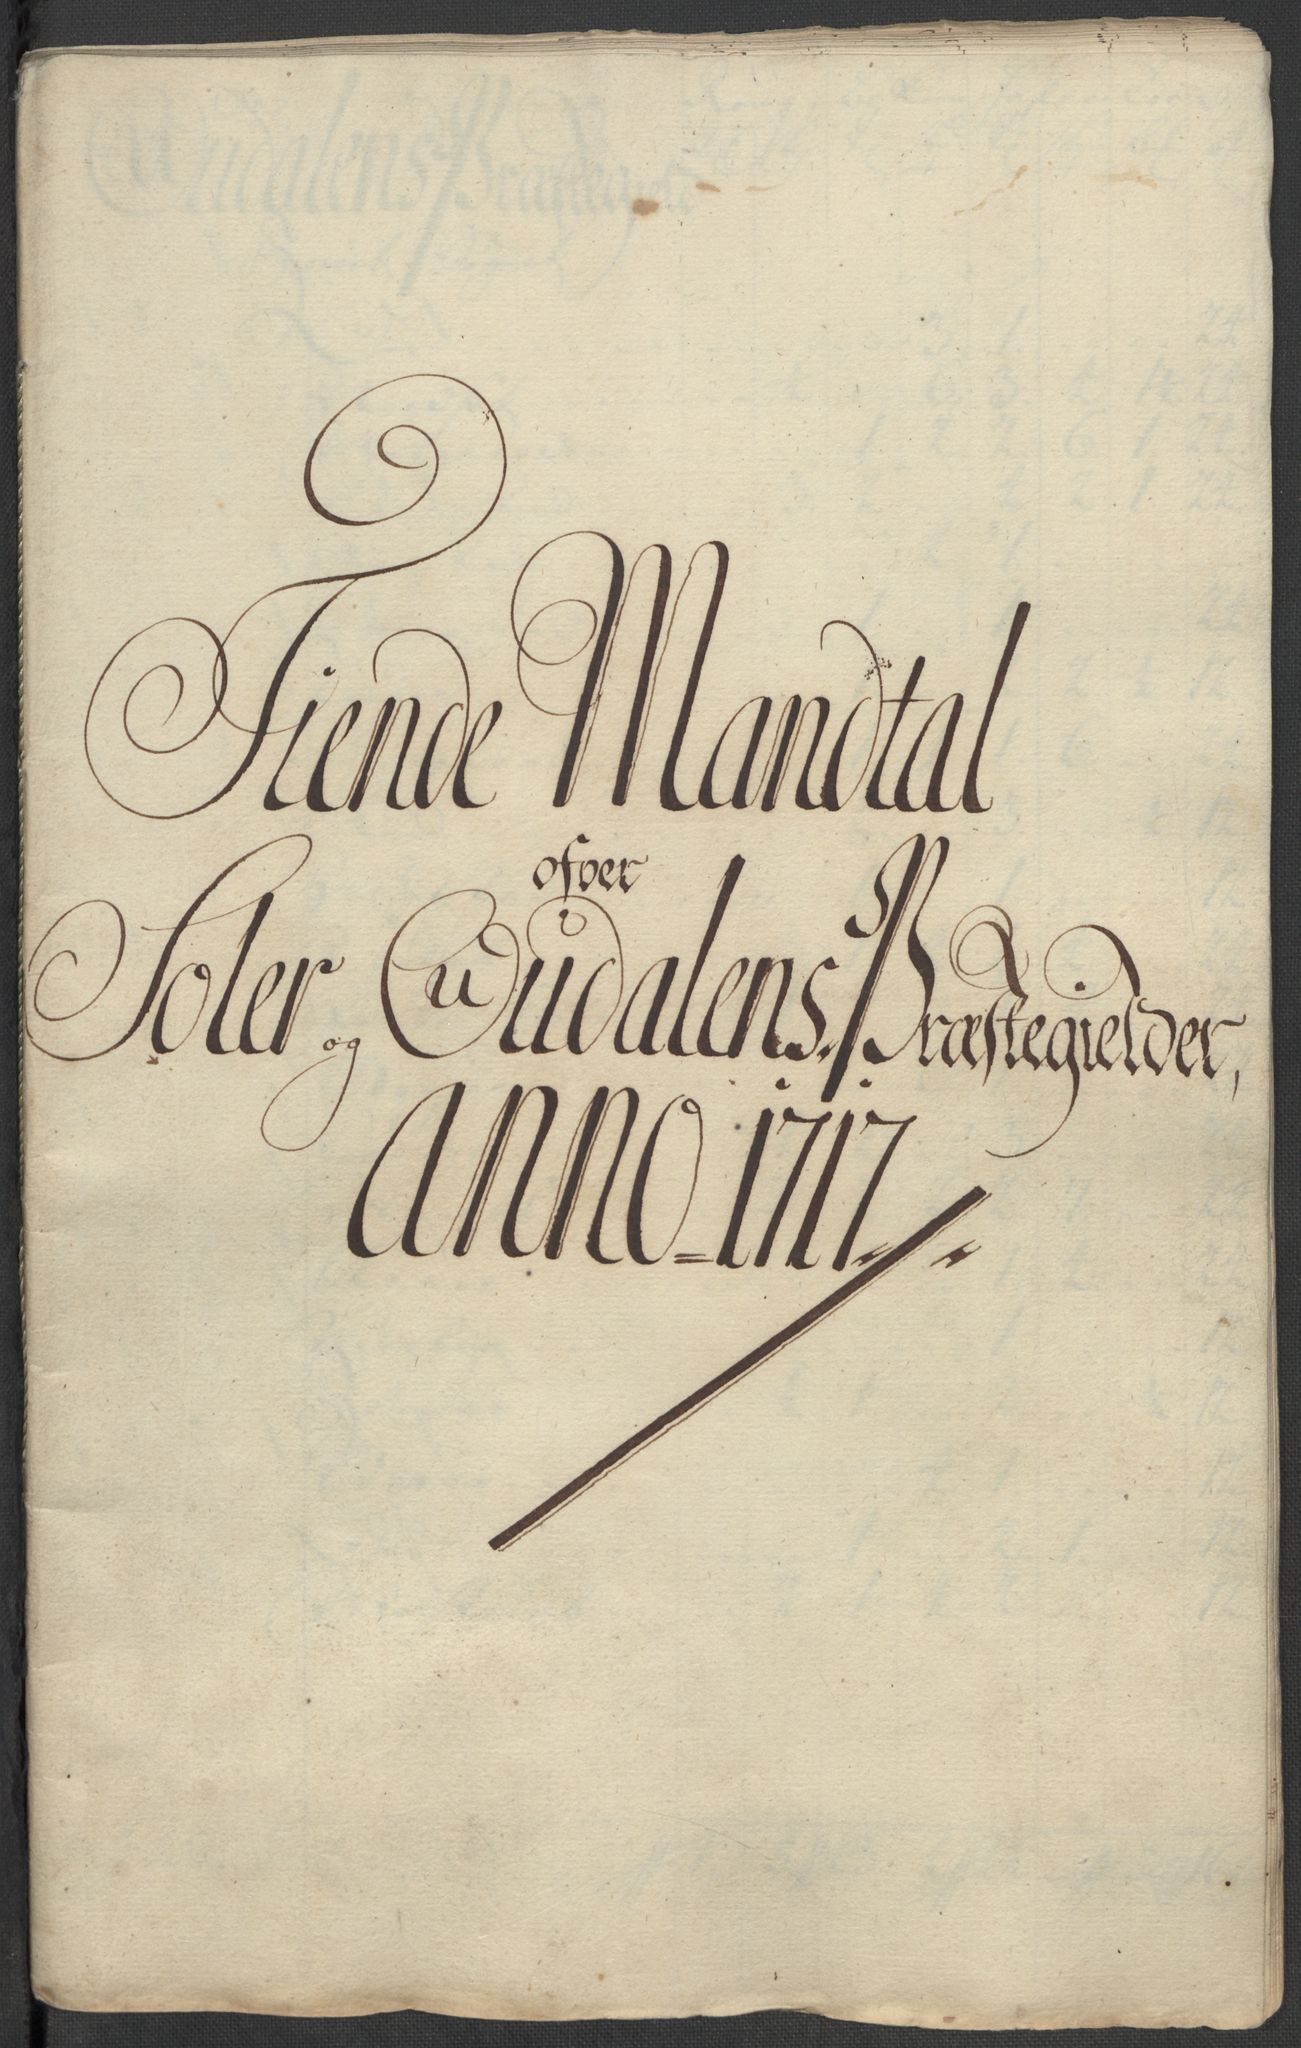 Tiende Mandtal
ofver
Soler og Oudalens Præstegielder,
Anno 1717